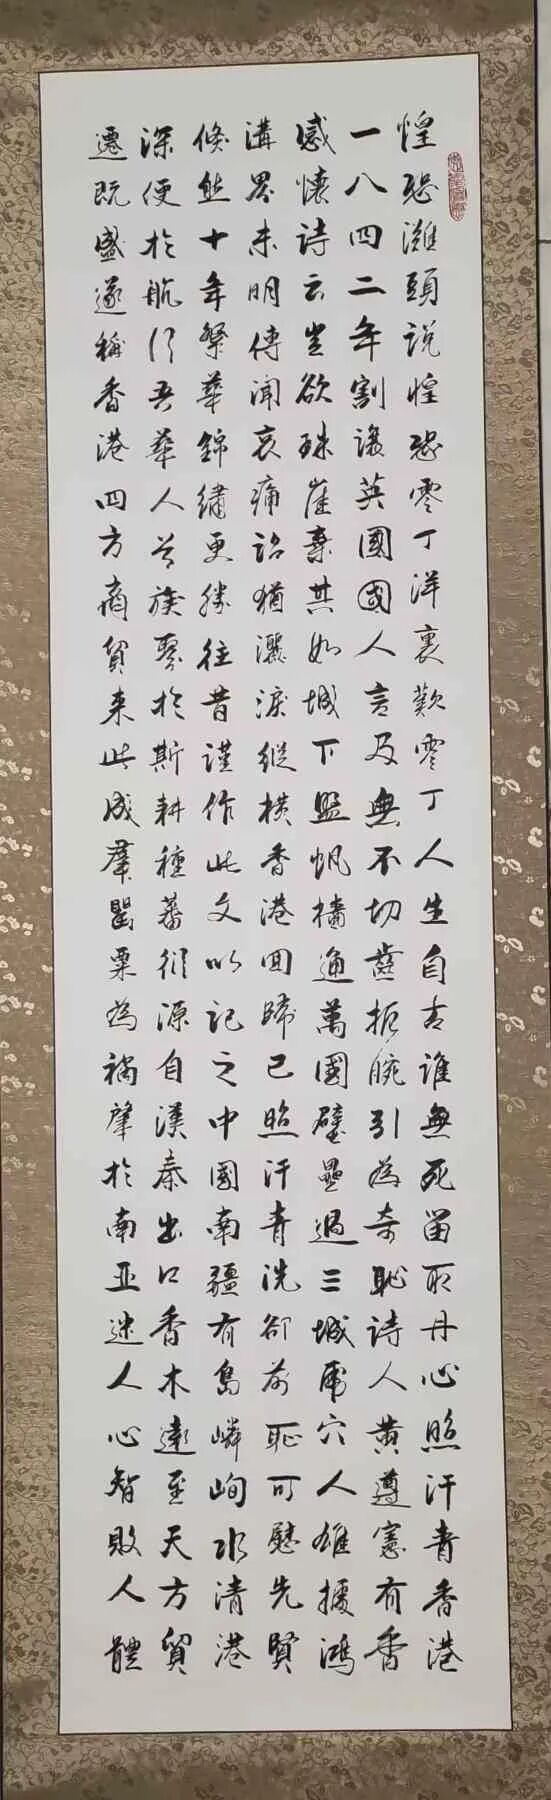 惶恐灘頭說惶恐零丁洋裏歎零丁人生自古誰無死留取丹心照汗青香港
一八四二年割讓英國國人言及無不切齒扼腕引為奇恥詩人黃遵憲有香
感懷詩云豈欲珠崖棄其如城下盟帆檣通萬國壁壘過三城虎穴人雄據鴻
溝界未明傳聞哀痛詔猶灑淚縱橫香港回歸已照汗青洗卻前恥可慰先賢
倏然十年繁華錦繡更勝往昔謹作此文以記之中國南疆有島嶙峋水清港
深便於航行吾華人公族聚於斯耕種蕃衍源自漢秦出口香木遠至天方貿
遷既盛遂稱香港四方商貿來此成羣罌粟為禍肇於南亞迷人心智敗人體